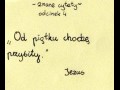 -znane cytaty-
odcinek 4
„Od piątku chodzę
przybity."
Jezus